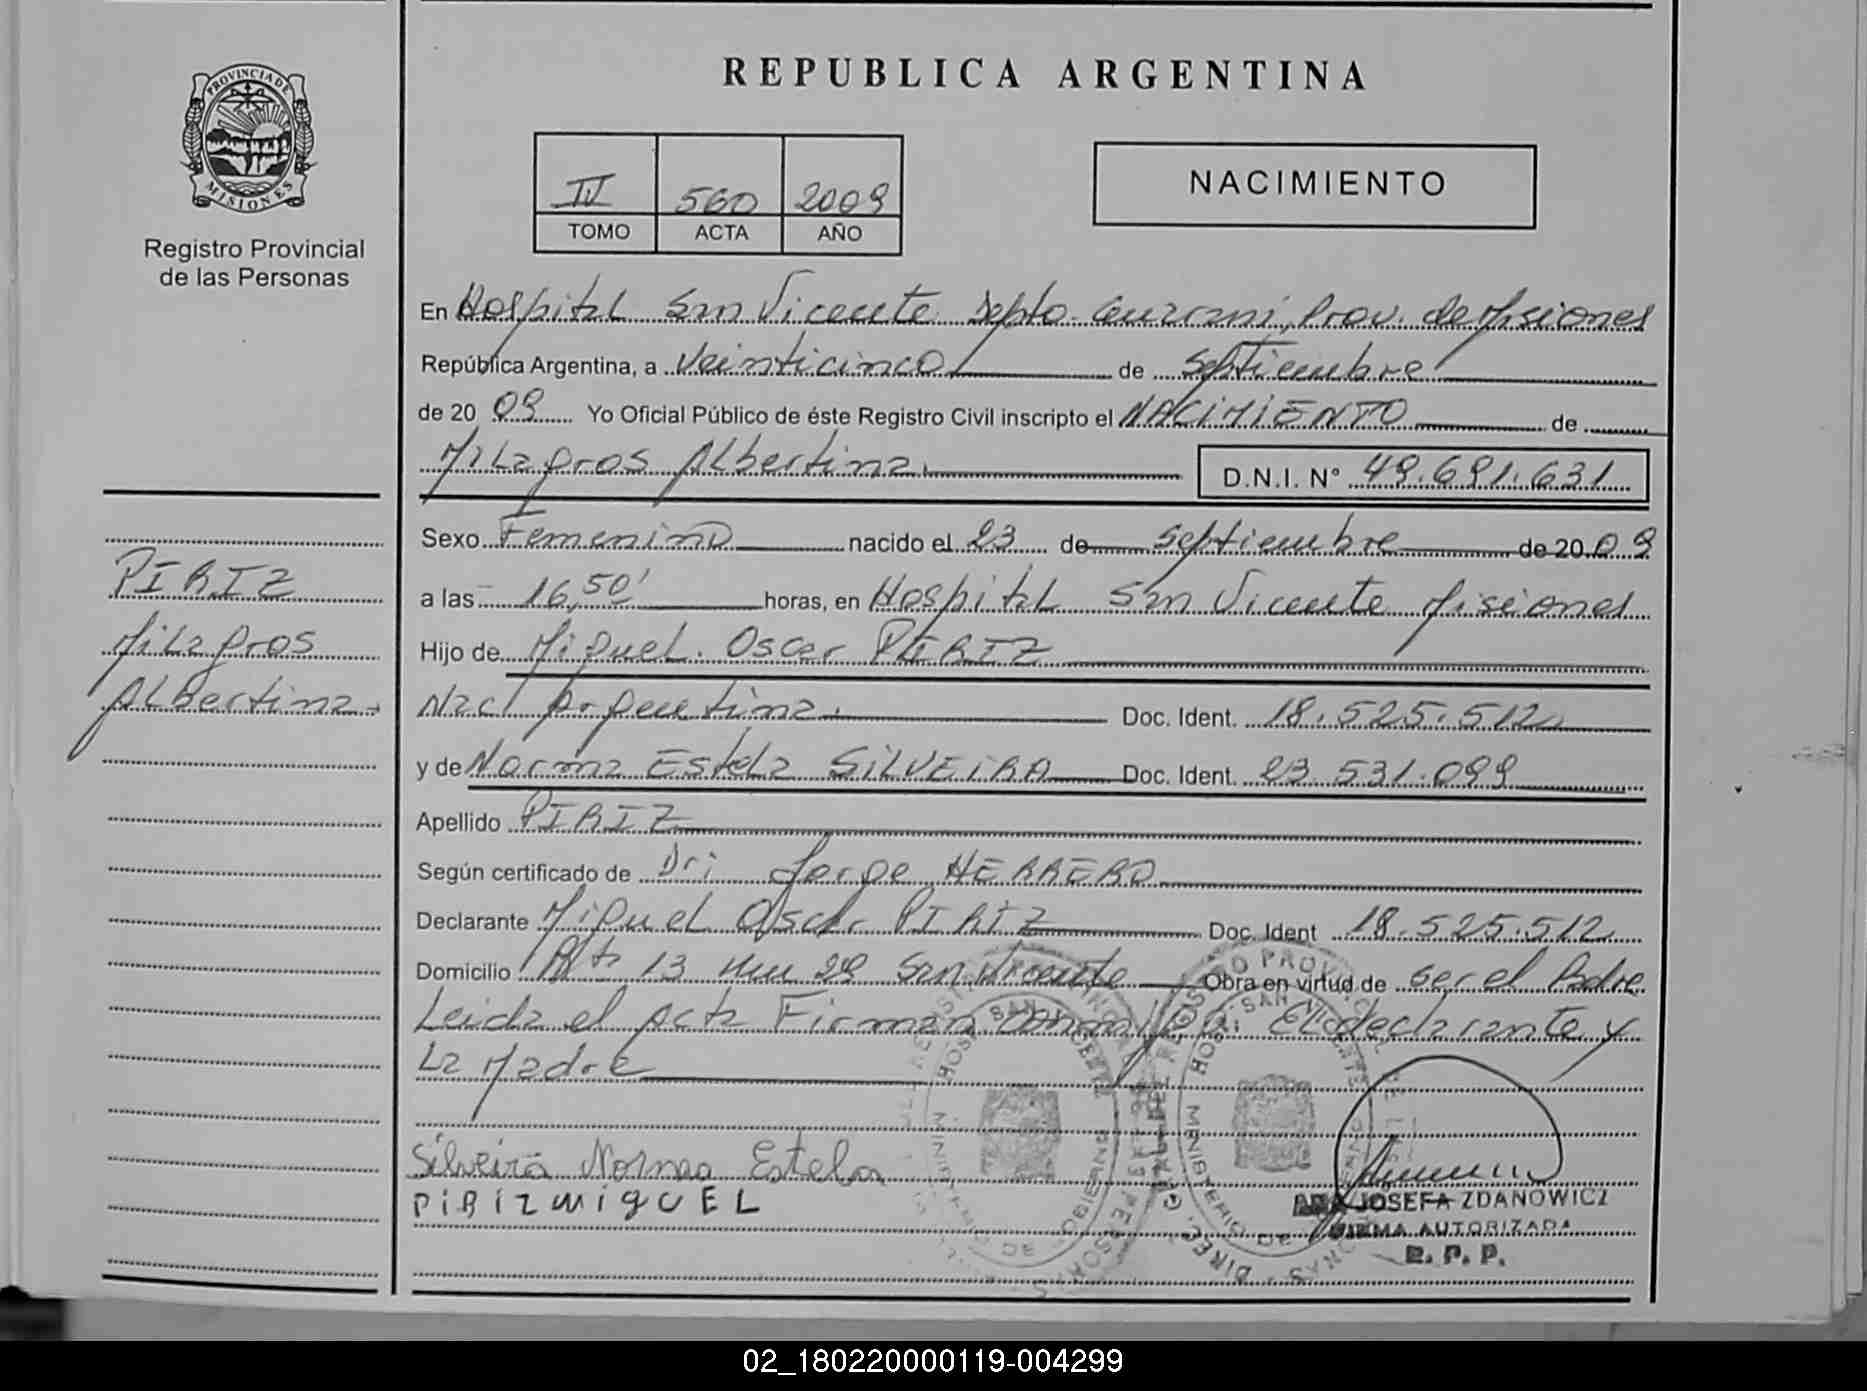 REPUBLICA ARGENTINA
PROVINCIA DE MISIONES
Registro Provincial
de las Personas
IV 560 2009
TOMO ACTA AÑO
NACIMIENTO
En Hospital San Vicente Depto. Guarani, Prov. de Misiones
República Argentina, a Veinticinco de Septiembre
de 20 09 Yo Oficial Público de éste Registro Civil inscripto el NACIMIENTO de
Milagros Albertina. D.N.I. N° 49.691.631
Sexo Femenino nacido el 23 de Septiembre de 20 09
a las 16,50' horas, en Hospital San Vicente Misiones
Hijo de Miguel Oscar PIRIZ
Nac. Argentina. Doc. Ident. 18.525.512
y de Norma Estela SILVEIRA Doc. Ident. 23.531.099
Apellido PIRIZ
Según certificado de Dr. Jorge HERRERO
Declarante Miguel Oscar PIRIZ Doc. Ident 18.525.512
Domicilio Ruta 13 Km 29 San Vicente Obra en virtud de ser el Padre
Leida el acta Firman El declarante y
La Madre
Silveira Norma Estela
PIRIZ MIGUEL
PIRIZ
Milagros
Albertina.
JOSEFA ZDANOWICZ
FIRMA AUTORIZADA
R. P. P.
02_180220000119-004299